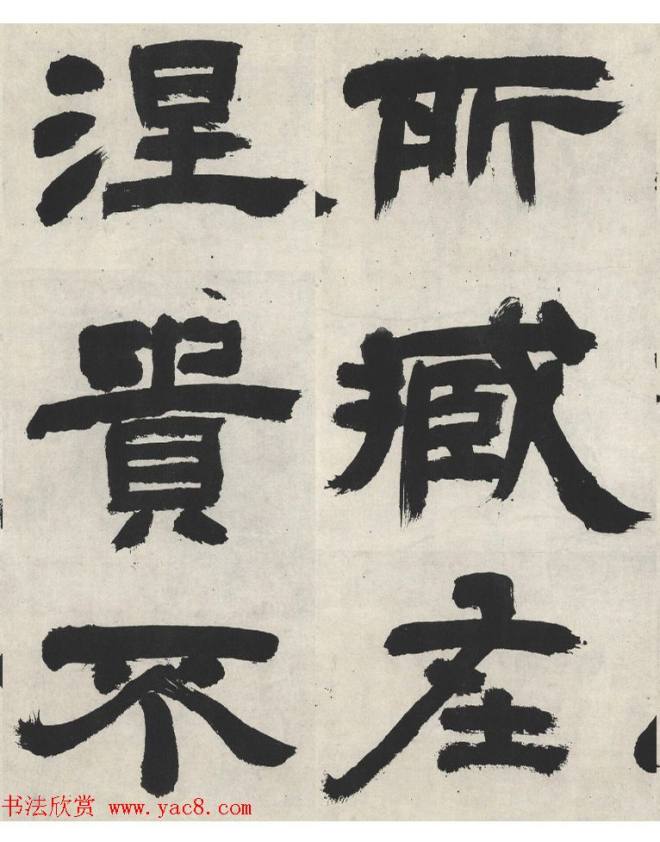 所臧在
涅貴不
书法欣赏 www.yac8.com